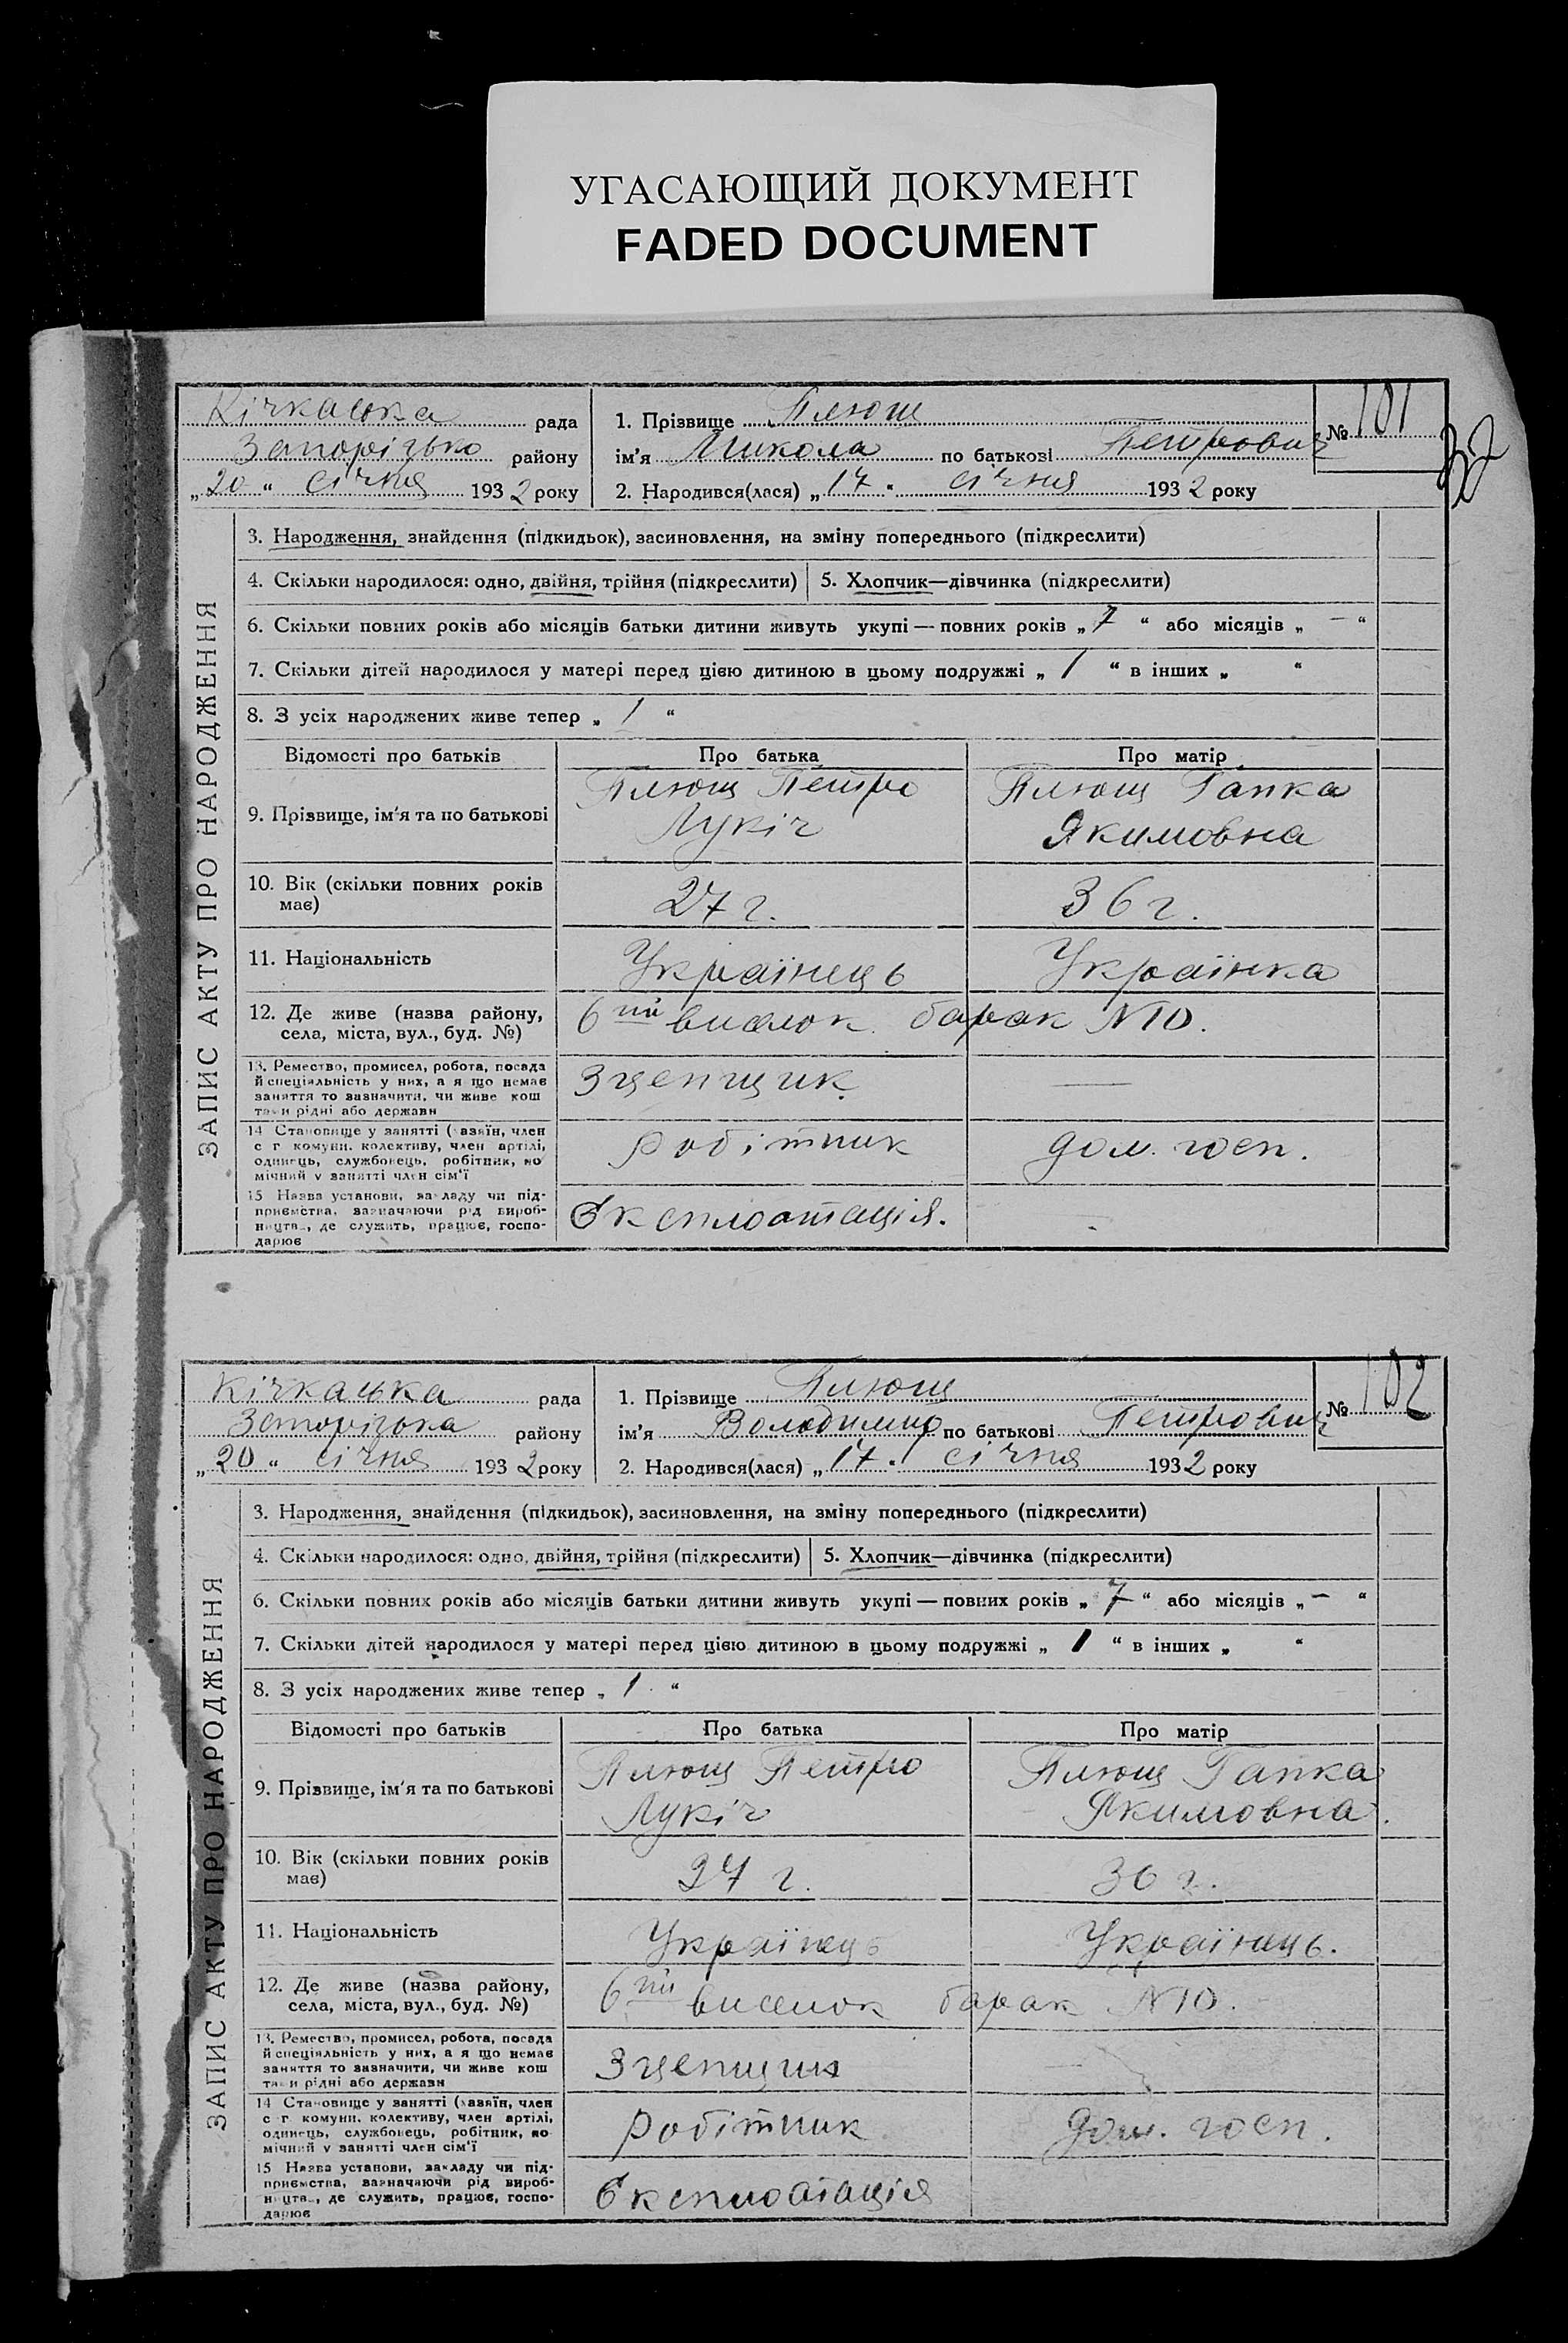 УГАСАЮЩИЙ ДОКУМЕНТ
FADED DOCUMENT
Кічкаська рада
Запорізько району
„20“ січня 1932 року
1. Прізвище Плющ
ім'я Микола по батькові Петрович
2. Народився(лася) „17“ січня 1932 року
№ 101
ЗАПИС АКТУ ПРО НАРОДЖЕННЯ
3. Народження, знайдення (підкидьок), засиновлення, на зміну попереднього (підкреслити)
4. Скільки народилося: одно, двійня, трійня (підкреслити) 5. Хлопчик—дівчинка (підкреслити)
6. Скільки повних років або місяців батьки дитини живуть укупі — повних років „7“ або місяців „—“
7. Скільки дітей народилося у матері перед цією дитиною в цьому подружжі „1“ в інших „ “
8. З усіх народжених живе тепер „1“
Відомості про батьків Про батька Про матір
9. Прізвище, ім'я та по батькові
Плющ Петро
Лукіч
Плющ Гапка
Якимовна
10. Вік (скільки повних років
має)
27 г.
36 г.
11. Національність Українець Українка
12. Де живе (назва району,
села, міста, вул., буд. №)
6ий виселок барак N10.
13. Ремество, промисел, робота, посада
й спеціяльність у них, а я що немає
заняття то зазначити, чи живе кош
тами рідні або держави
Зцепщик —
14 Становище у занятті (хазяїн, член
с г комуни, колективу, член артілі,
одинець, службовець, робітник, по
мічний у занятті член сім'ї
робітник
дом. госп.
15 Назва установи, закладу чи під-
приємства, зазначаючи рід вироб-
ництва, де служить, працює, госпо-
дарює
Експлоатація.
Кічкаська рада
Запорізька району
„20“ січня 1932 року
1. Прізвище Плющ
ім'я Володимир по батькові Петрович
2. Народився(лася) „17“ січня 1932 року
№ 102
ЗАПИС АКТУ ПРО НАРОДЖЕННЯ
3. Народження, знайдення (підкидьок), засиновлення, на зміну попереднього (підкреслити)
4. Скільки народилося: одно, двійня, трійня (підкреслити) 5. Хлопчик—дівчинка (підкреслити)
6. Скільки повних років або місяців батьки дитини живуть укупі — повних років „7“ або місяців „—“
7. Скільки дітей народилося у матері перед цією дитиною в цьому подружжі „1“ в інших „ “
8. З усіх народжених живе тепер „1“
Відомості про батьків Про батька Про матір
9. Прізвище, ім'я та по батькові
Плющ Петро
Лукіч
Плющ Гапка
Якимовна.
10. Вік (скільки повних років
має)
27 г.
36 г.
11. Національність Українець Українець.
12. Де живе (назва району,
села, міста, вул., буд. №)
6ий виселок барак N10.
13. Ремество, промисел, робота, посада
й спеціяльність у них, а я що немає
заняття то зазначити, чи живе кош
тами рідні або держави
Зцепщик
14 Становище у занятті (хазяїн, член
с г комуни, колективу, член артілі,
одинець, службовець, робітник, по
мічний у занятті член сім'ї
робітник
дом. госп.
15 Назва установи, закладу чи під-
приємства, зазначаючи рід вироб-
ництва, де служить, працює, госпо-
дарює
Експлоатація